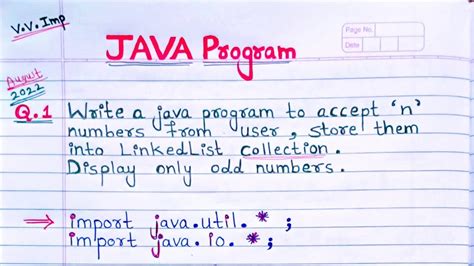 V.V. Imp
Page No.
Date
JAVA Program
August
2022
Q.1 Write a java program to accept 'n'
numbers from user, store them
into LinkedList collection.
Display only odd numbers.
⇒ import java.util.*;
import java.io.*;